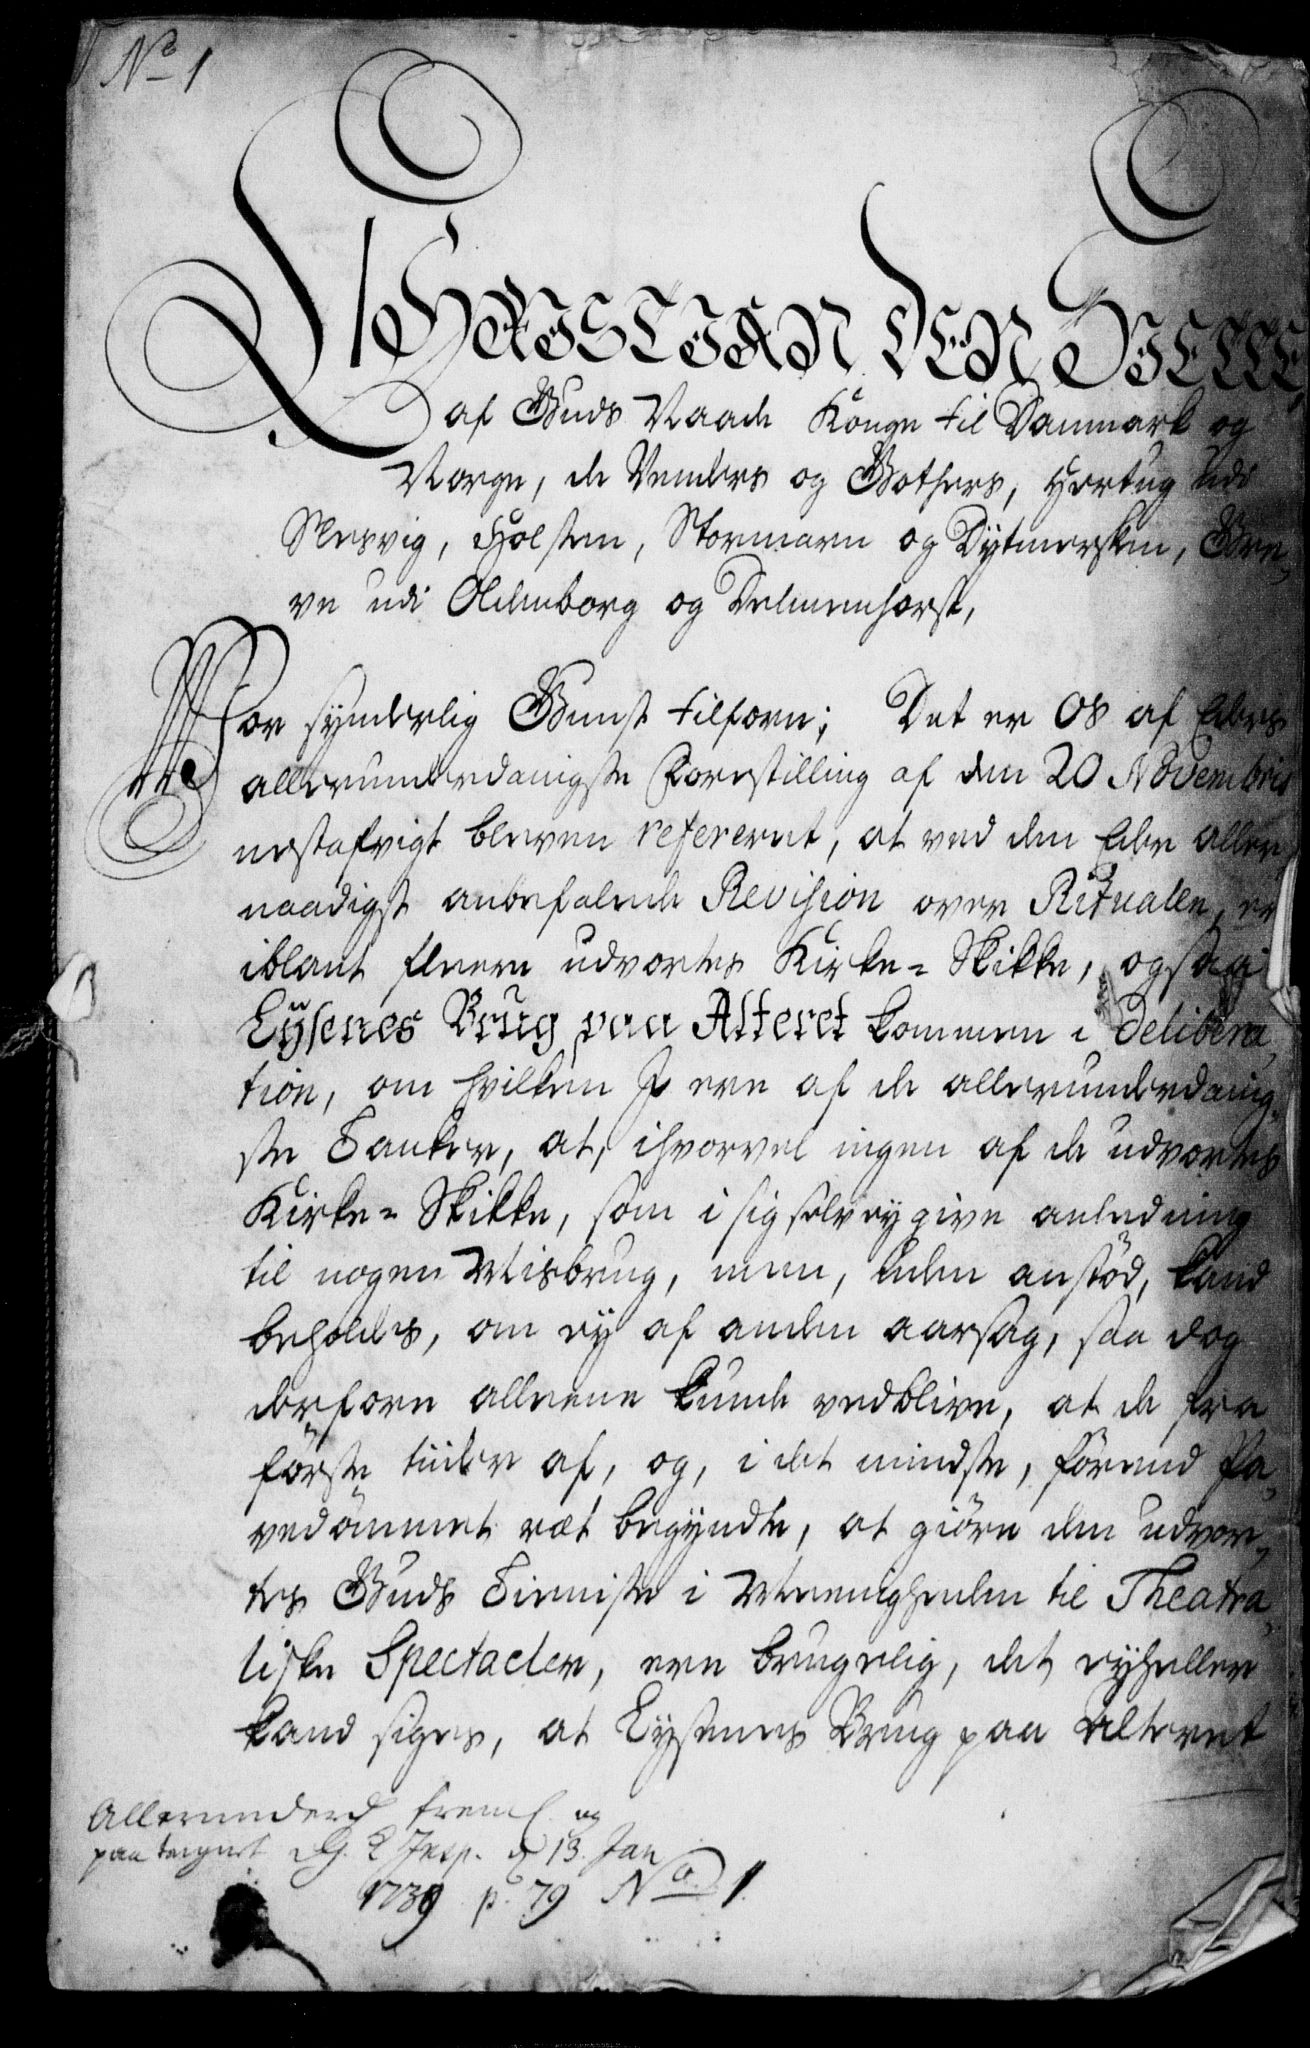 No 1
CHRISTIAN DEN SIETTE,
af Guds Naade Konge til Danmark og
Norge, de Venders og Gothers, Hertug udi
Slesvig, Holsten, Stormarn og Dytmersken, Gre-
ve udi Oldenborg og Delmenhorst,
Vor synderlig Gunst tilforn; Det er Os af Eders
allerunderdanigste Forestilling af den 20 Novembris
nestafvigt bleven refereret, at ved den Eder aller-
naadigst anbefalede Revision over Ritualen, er
iblant fleere udvortes Kirke-Skikke, ogsaa
Lysenes Brug paa Alteret kommen i Delibera-
tion, om hvilken I ere af de allerunderdanig-
ste Tanker, at, ihvorvel ingen af de udvortes
Kirke-Skikke, som i sig selv ey give anledning
til nogen Misbrug, men, uden anstöd, kand
beholdes, om ey af anden aarsag, saa dog
derfore alleene kunde vedblive, at de fra
förste tiider af, og, i det mindste, förend Pa-
vedömmet ræt begyndte, at giöre den udvor-
tes Guds Tieniste i Meenigheden til Theatra-
liske Spectacler, ere brugelig, det eyheller
kand siges, at Lysenes Brug paa Alteret
Allerunderd frem og
paa tegnet d 13. Jan
1739 p. 79 No 1.